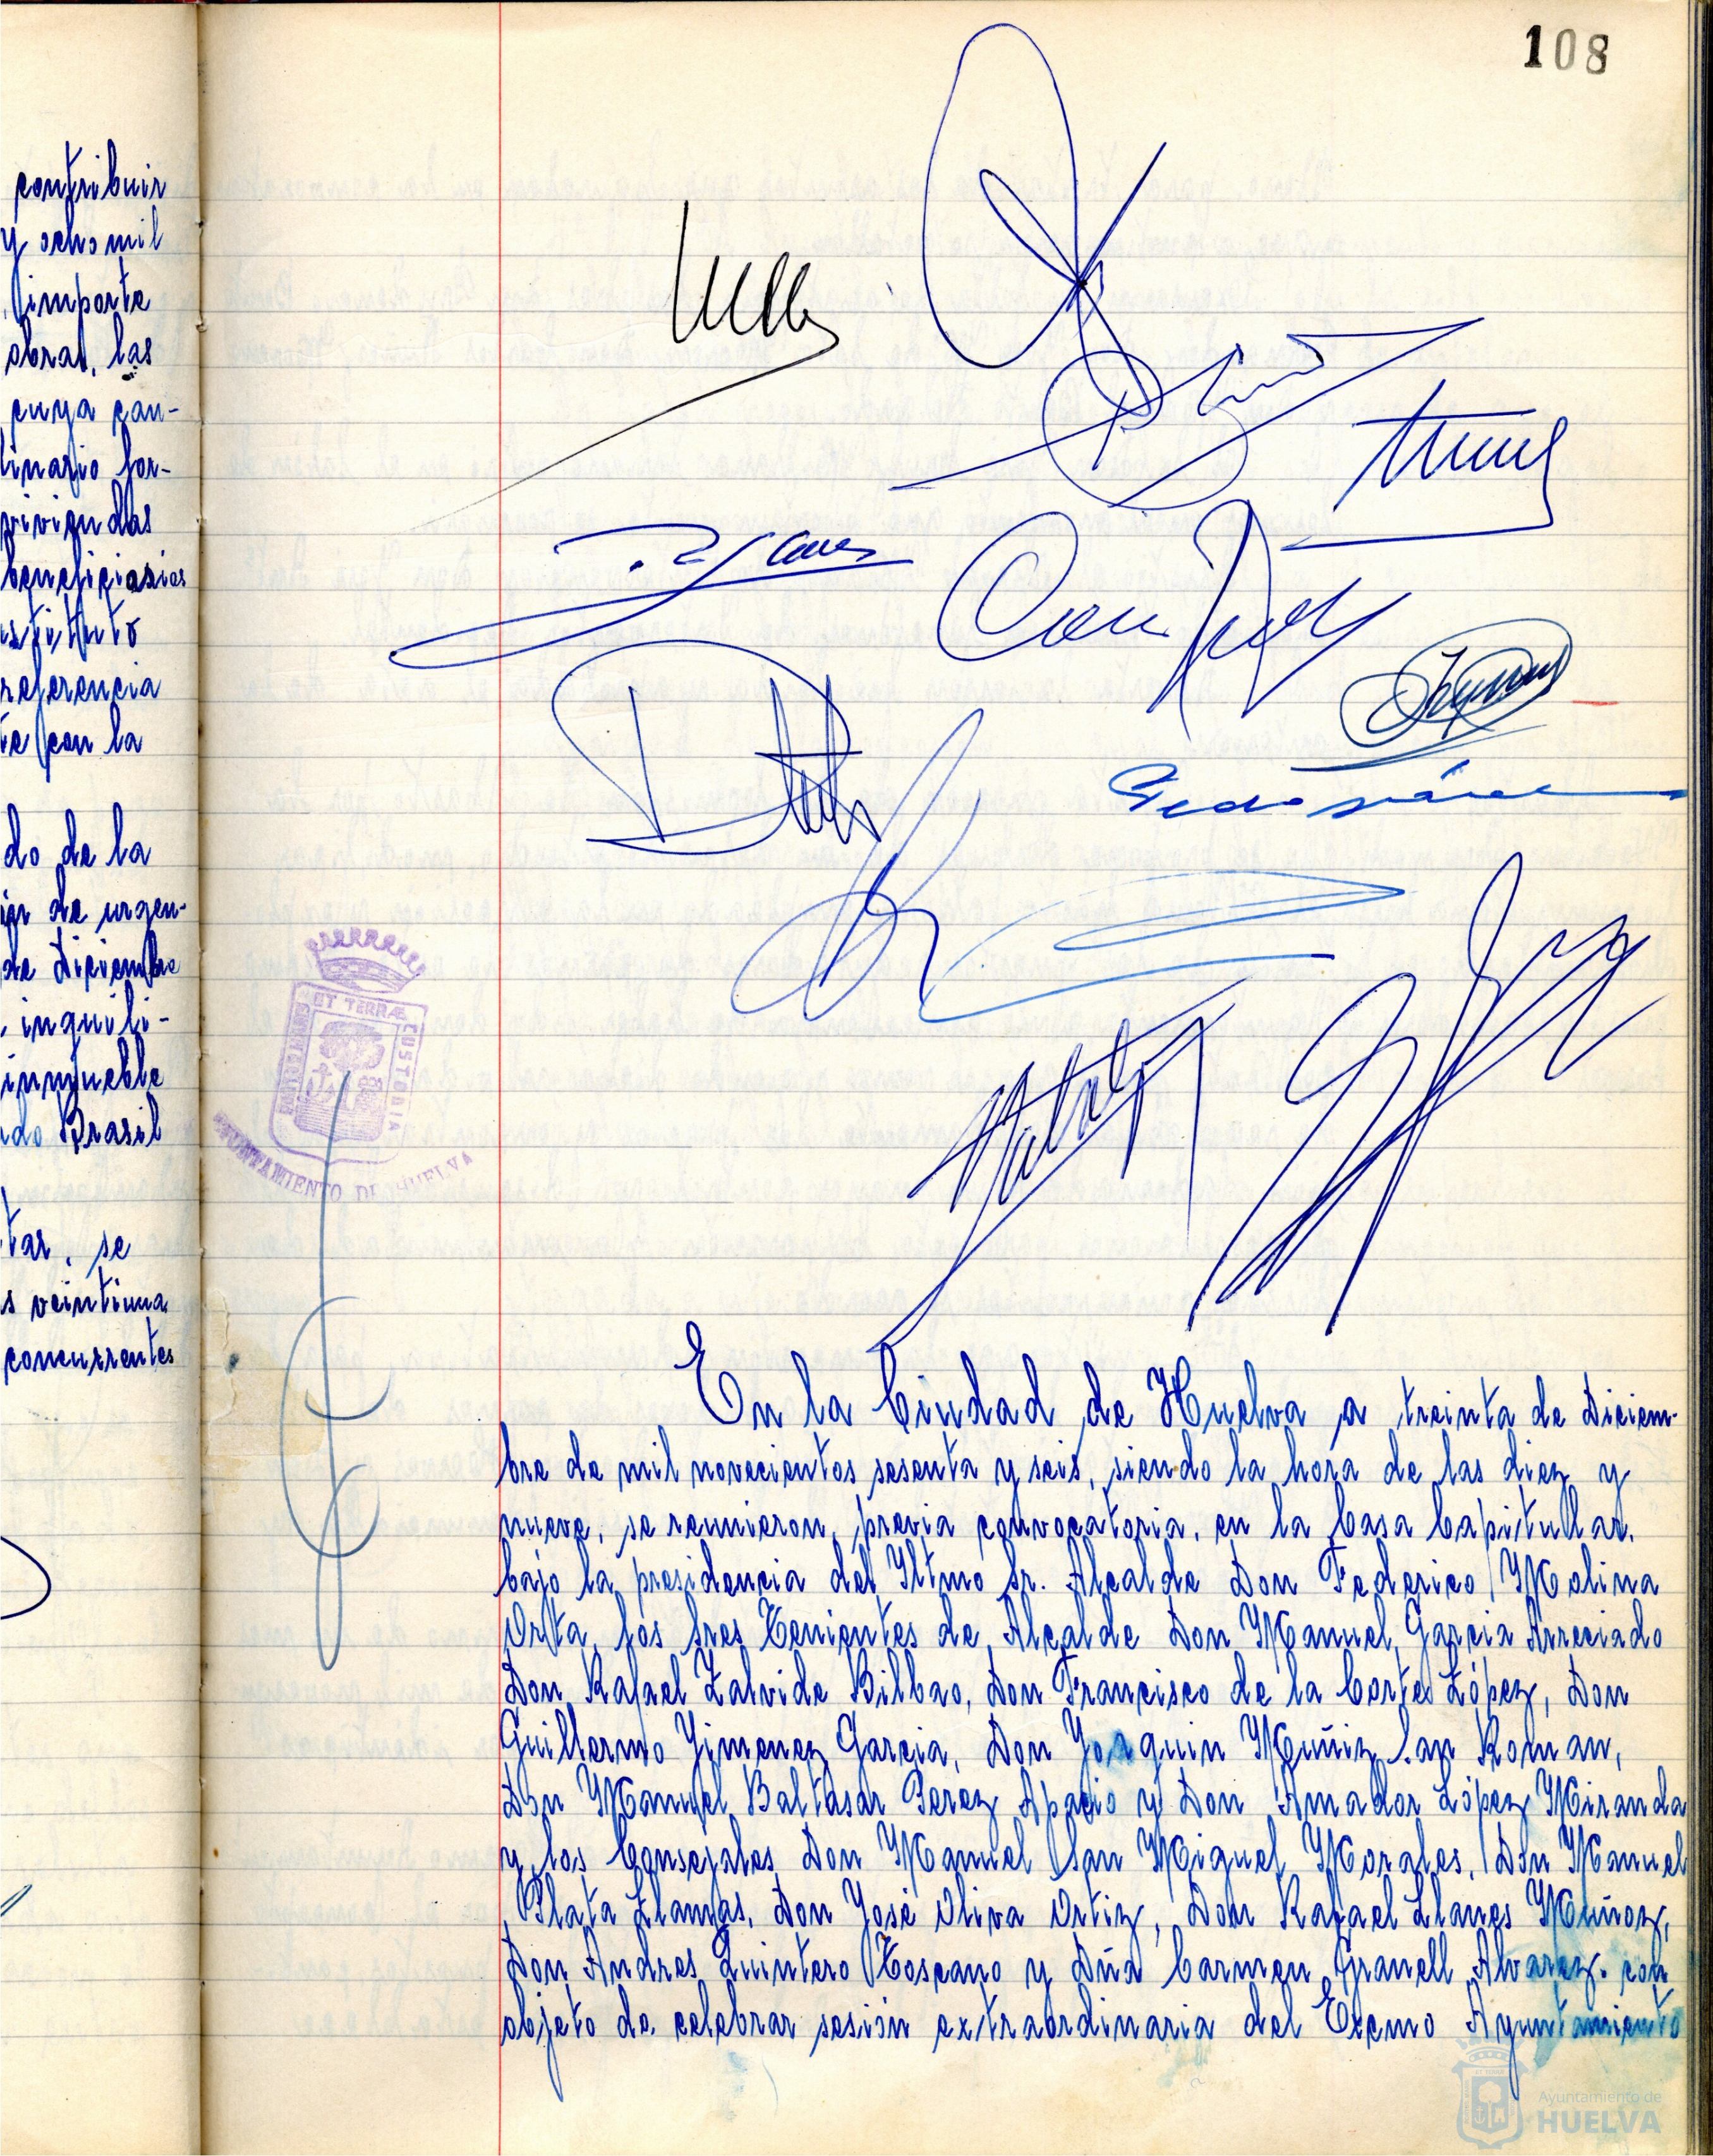 108
contribuir
y ocho mil
importe
obras, las
cuya can-
linario for-
viviendas
beneficiarios
stituto
referencia
te con la
do de la
de urgen-
de Diciembre
, inquili-
inmueble
do Brasil
tar, se
s veintiuna
concurrentes
ET TERRÆ CUSTODIA
AYUNTAMIENTO DE HUELVA
En la Ciudad de Huelva a treinta de Diciem-
bre de mil novecientos sesenta y seis, siendo la hora de las diez y
nueve, se reunieron, previa convocatoria, en la Casa Capitular,
bajo la presidencia del Iltmo Sr. Alcalde Don Federico Molina
Orta, los Sres Tenientes de Alcalde Don Manuel Garcia Arreciado
Don Rafael Zalvide Bilbao, Don Francisco de la Corte López, Don
Guillermo Jimenez Garcia, Don Joaquin Muñiz San Roman,
Don Manuel Baltasar Perez Apacio y Don Amador López Miranda
y los Consejales Don Manuel San Miguel Morales, Don Manuel
Plata Llamas, Don José Oliva Ortiz, Don Rafael Llanes Muñoz,
Don Andres Quintero Toscano y Dña Carmen Granell Alvarez. con
objeto de celebrar sesión extraordinaria del Excmo Ayuntamiento
Ayuntamiento de
HUELVA